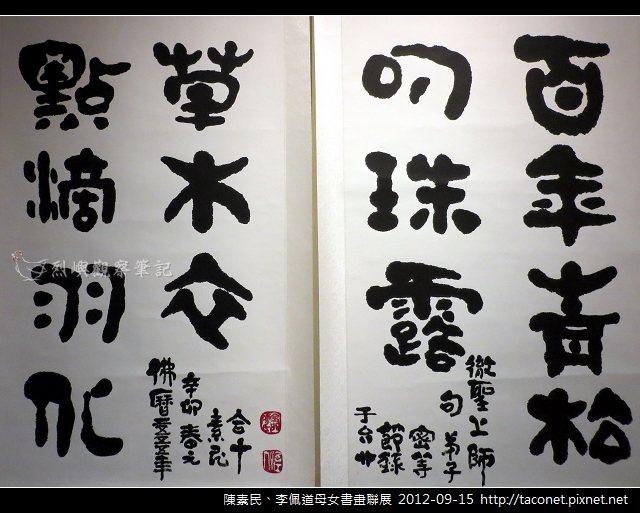 百年青松
叨珠露
聖上師
句 弟子
密等
節錄
于台中
草木
點滴羽化
合十
素民
辛卯 春之
佛曆
烈嶼觀察筆記
陳素民、李佩道母女書畫聯展 2012-09-15 http://taconet.pixnet.net